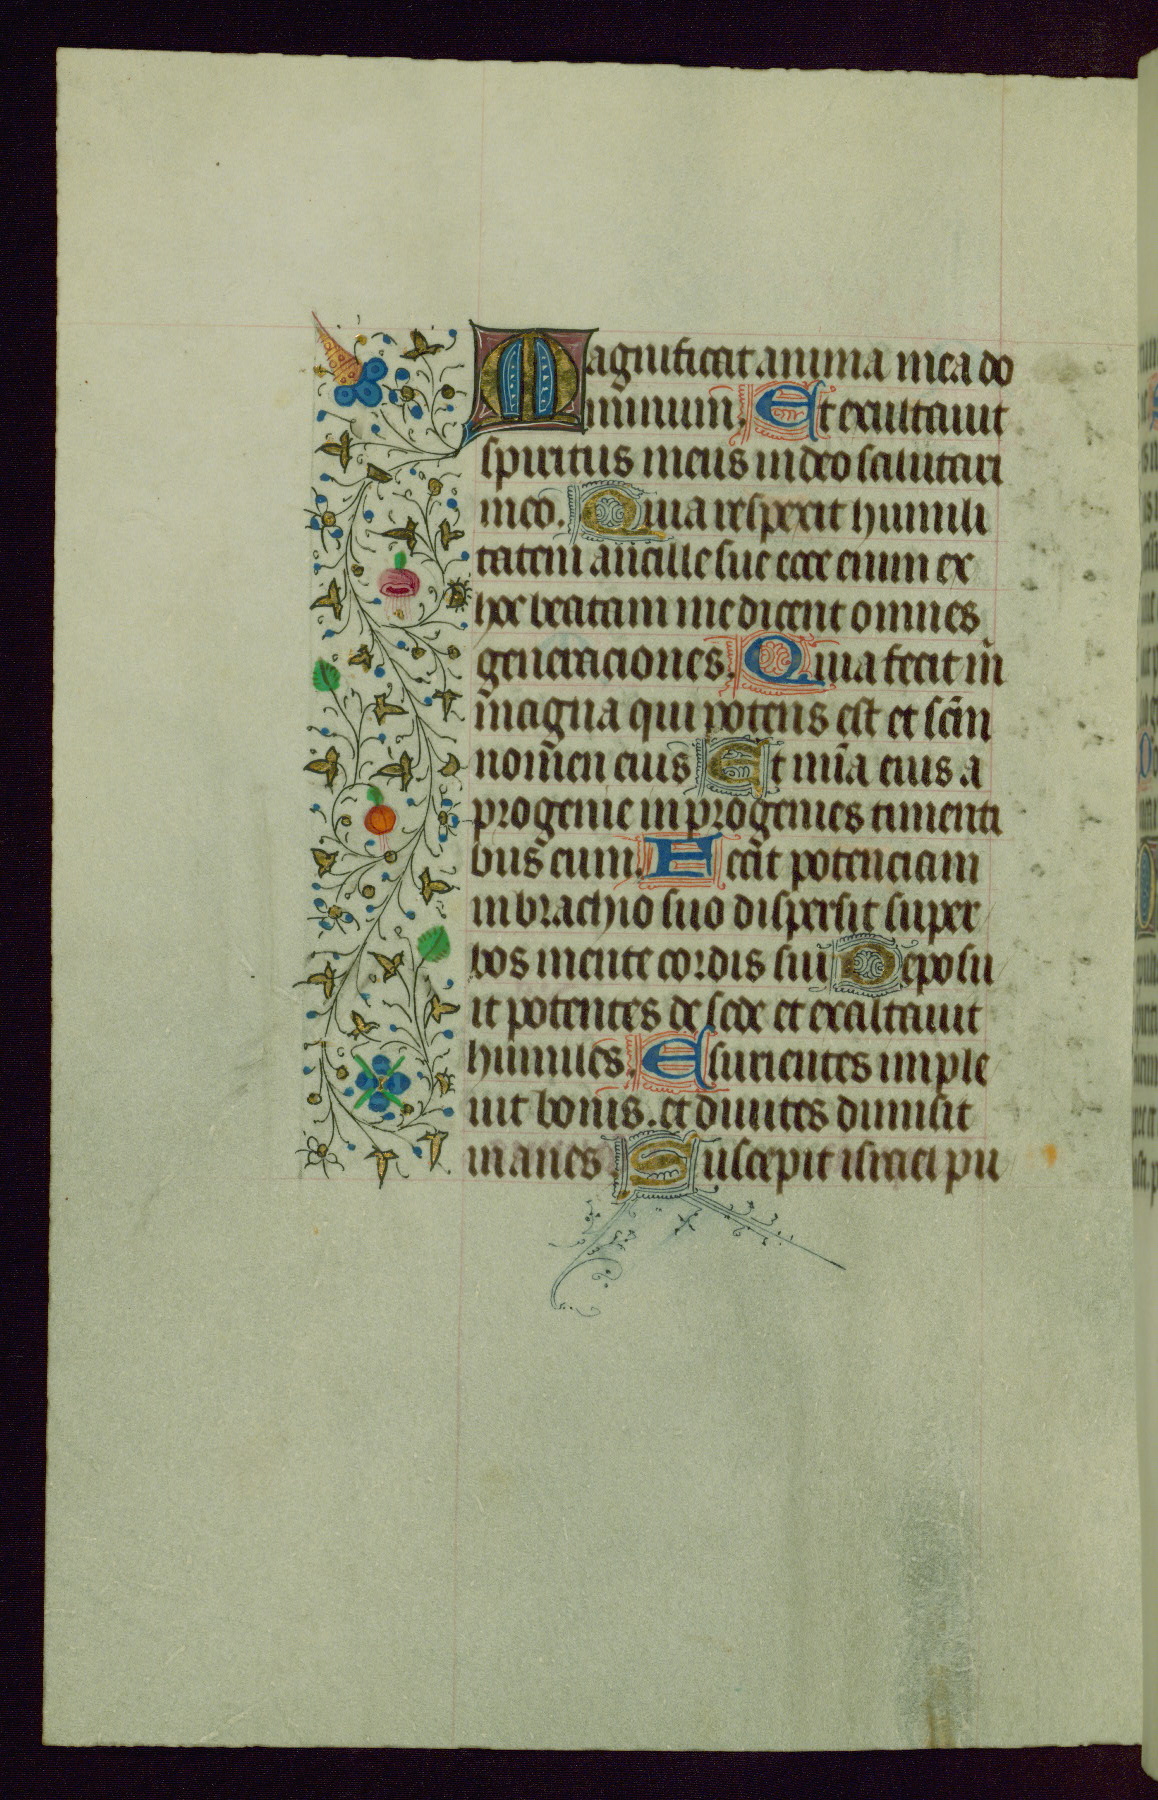 Magnificat anima mea do
minum. Et exultauit
spiritus meus in deo salutari
meo. Quia respexit humili
tatem ancille sue ecce enim ex
hoc beatam me dicent omnes
generaciones. Quia fecit m̄
magna qui potens est et scm̄
nomen eius Et mīa eius a
progenie in progenies timenti
bus eum. Fecit potenciam
in brachio suo dispersit super
bos mente cordis sui Deposu
it potentes de sede et exaltauit
humiles. Esurientes imple
uit bonis. et diuites dimisit
inanes Suscepit israel pu